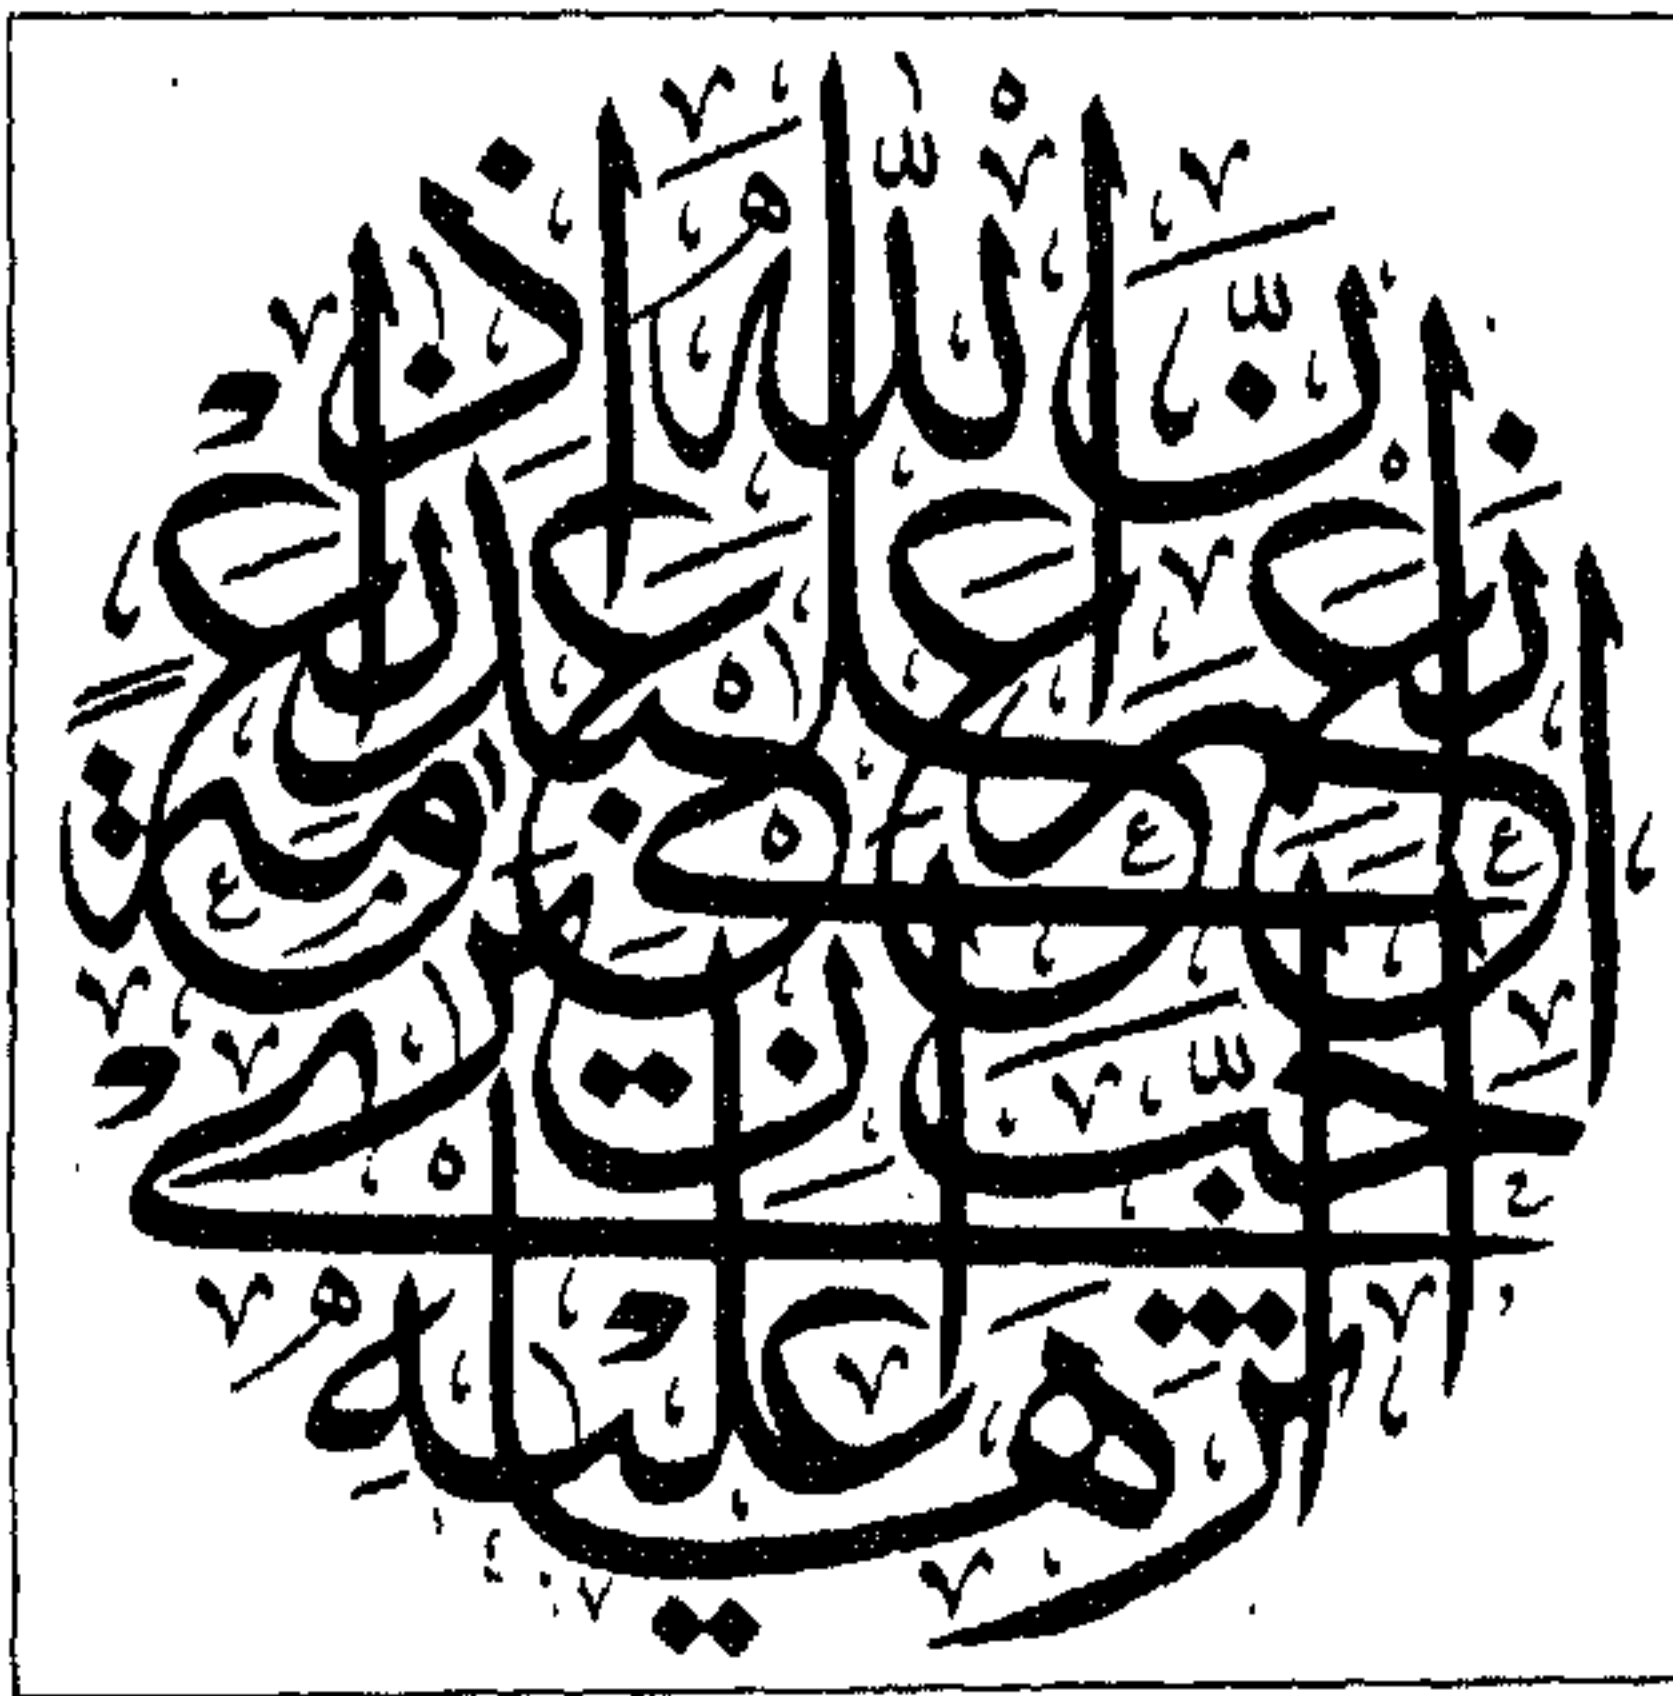 إن الله إذا
أنعم على عبد نعمة
أحب أن ترى
أثرها عليه